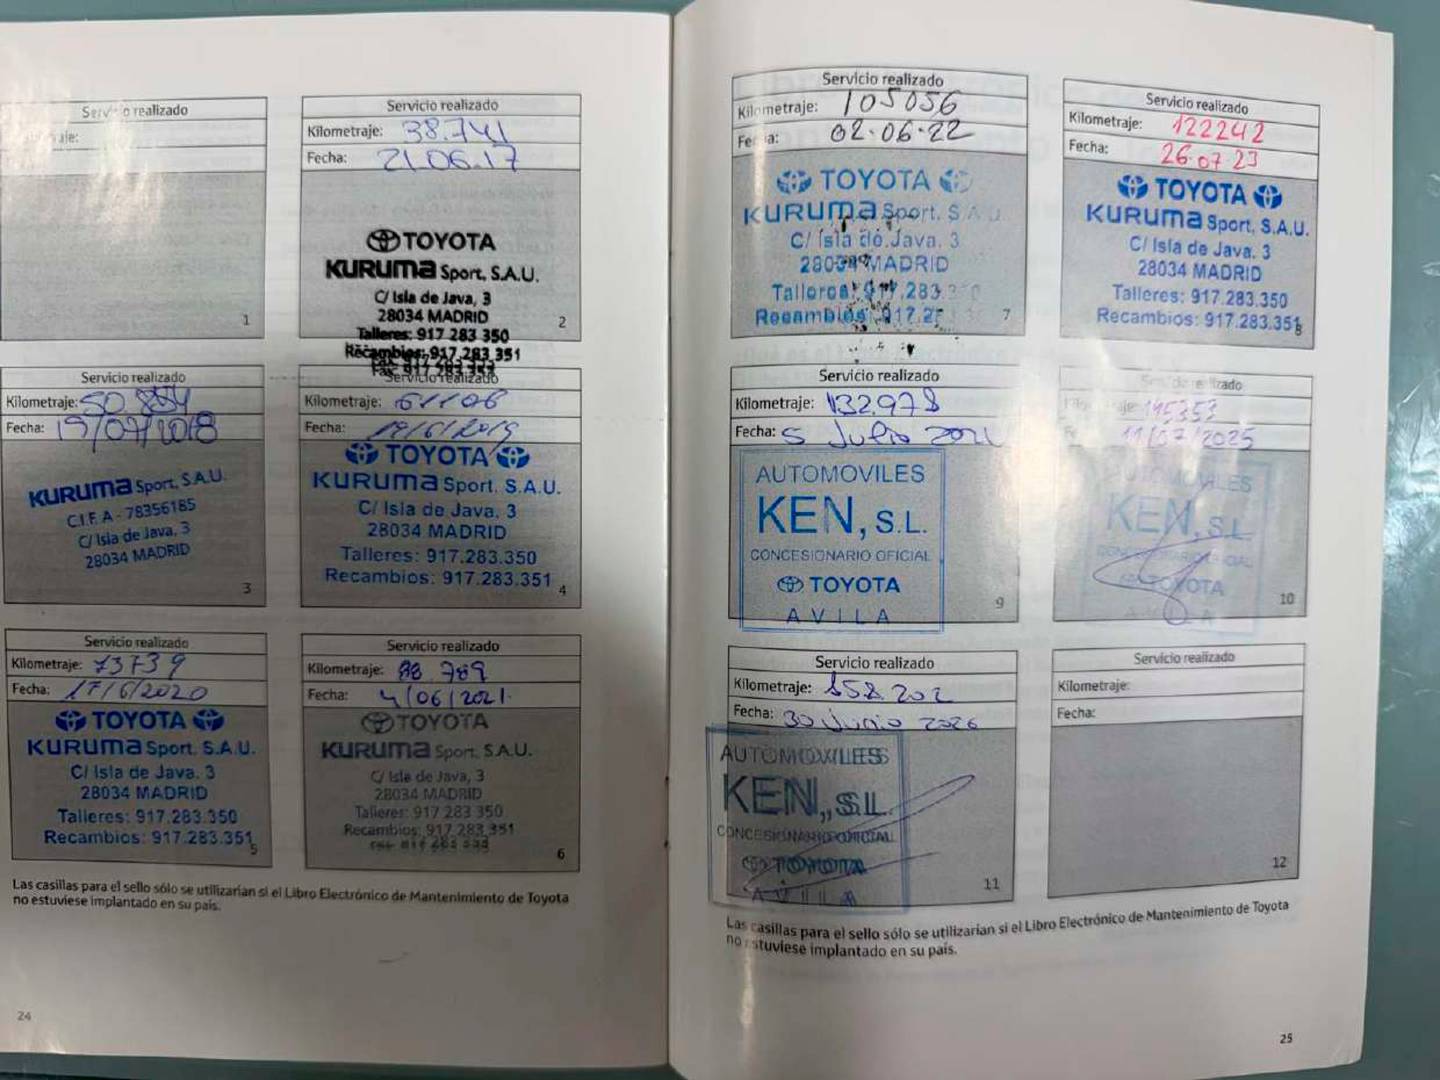 Servicio realizado
1
Servicio realizado
Kilometraje: 38.741
Fecha: 21.06.17
TOYOTA
KURUMA Sport, S.A.U.
C/ Isla de Java, 3
28034 MADRID
Talleres: 917 283 350
Recambios: 917 283 351
2
Servicio realizado
Kilometraje: 50.854
Fecha: 19/07/2018
KURUMA Sport, S.A.U.
C.I.F. A - 78356185
C/ Isla de Java, 3
28034 MADRID
3
Servicio realizado
Kilometraje: 61106
Fecha: 19/6/2019
TOYOTA
KURUMA Sport, S.A.U.
C/ Isla de Java, 3
28034 MADRID
Talleres: 917.283.350
Recambios: 917.283.351
4
Servicio realizado
Kilometraje: 73739
Fecha: 17/6/2020
TOYOTA
KURUMA Sport, S.A.U.
C/ Isla de Java, 3
28034 MADRID
Talleres: 917.283.350
Recambios: 917.283.351
5
Servicio realizado
Kilometraje: 88 789
Fecha: 4/06/2021.
TOYOTA
KURUMA Sport, S.A.U.
C/ Isla de Java, 3
28034 MADRID
Talleres: 917 283 350
Recambios: 917 283 351
6
Las casillas para el sello sólo se utilizarían si el Libro Electrónico de Mantenimiento de Toyota
no estuviese implantado en su país.
24
Servicio realizado
Kilometraje: 105056
Fecha: 02.06.22
TOYOTA
KURUMA Sport, S.A.U.
C/ Isla de Java, 3
28034 MADRID
Talleres: 917.283.350
Recambios: 917.283.3
7
Servicio realizado
Kilometraje: 122242
Fecha: 26.07.23
TOYOTA
KURUMA Sport, S.A.U.
C/ Isla de Java, 3
28034 MADRID
Talleres: 917.283.350
Recambios: 917.283.351
8
Servicio realizado
Kilometraje: 132.978
Fecha: 5 Julio
AUTOMOVILES
KEN, S.L.
CONCESIONARIO OFICIAL
TOYOTA
AVILA
9
Servicio realizado
Kilometraje: 145353
11/07/2025
AUTOMOVILES
KEN, S.L.
CONCESIONARIO OFICIAL
TOYOTA
AVILA
10
Servicio realizado
Kilometraje: 158 202
Fecha: 30 Junio 2026
AUTOMOVILES
KEN, S.L.
CONCESIONARIO OFICIAL
TOYOTA
AVILA
11
Servicio realizado
Kilometraje:
Fecha:
12
Las casillas para el sello sólo se utilizarían si el Libro Electrónico de Mantenimiento de Toyota
no estuviese implantado en su país.
25